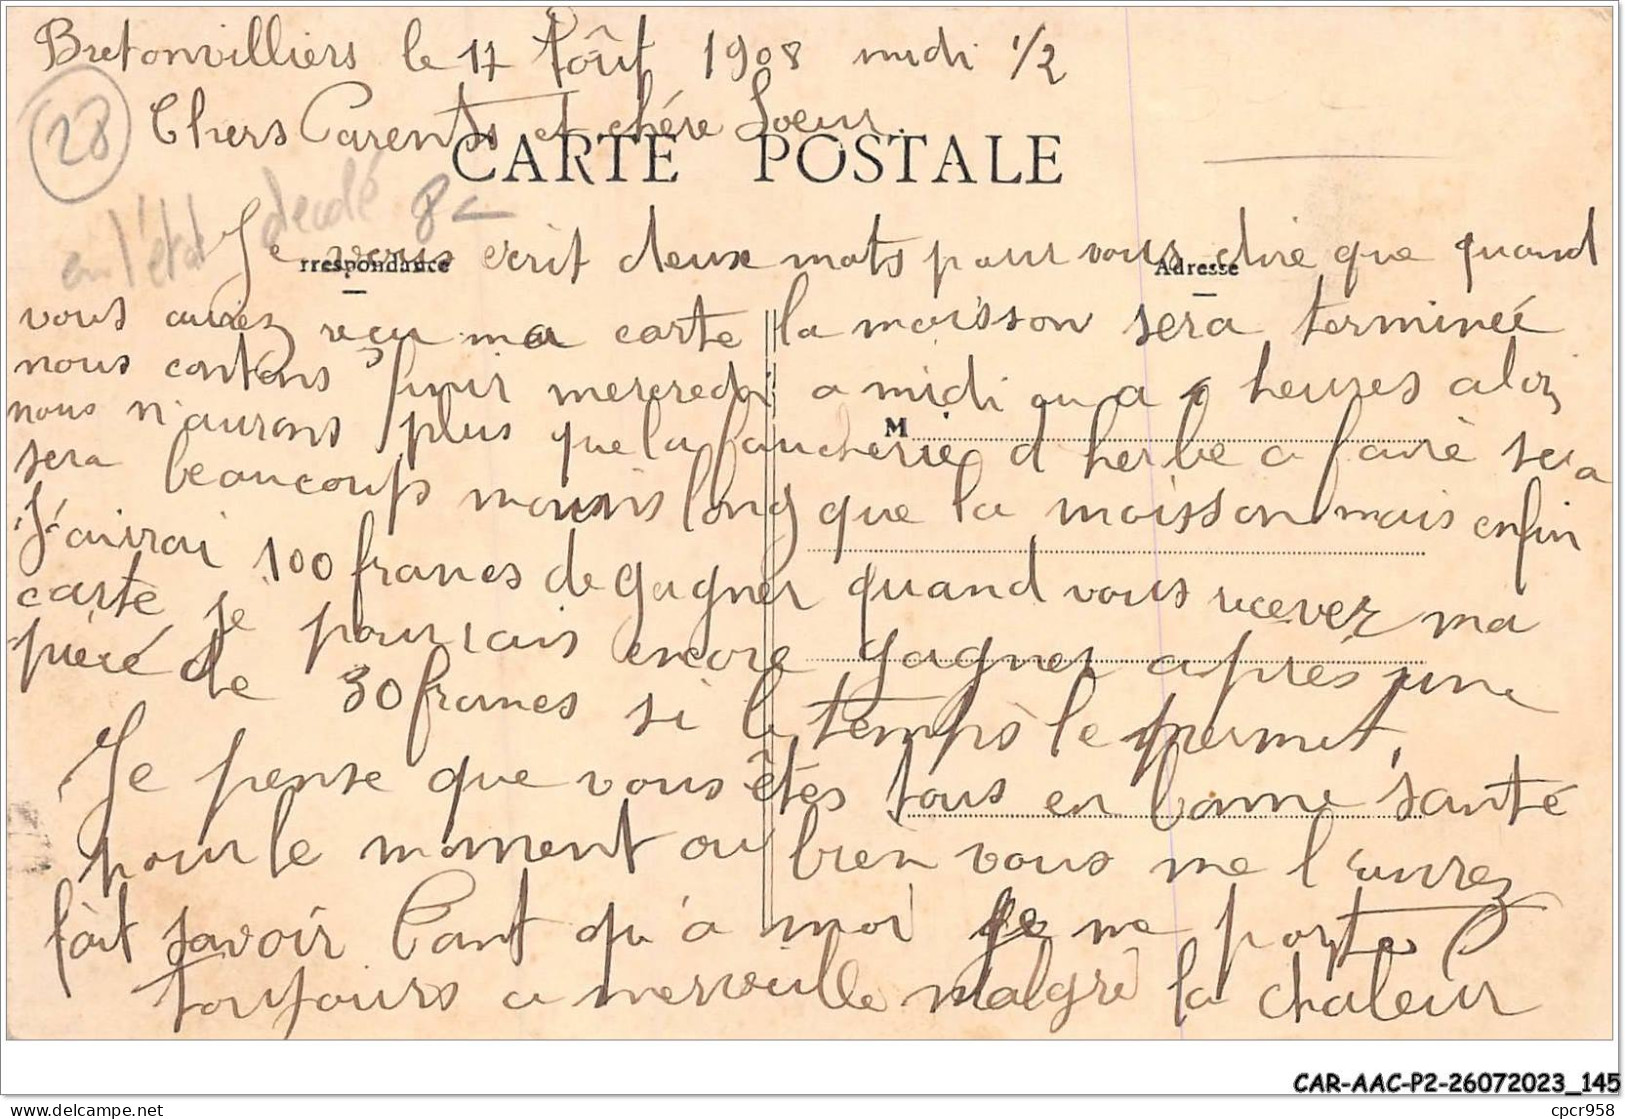 Bretonvilliers le 17 Aôut 1908 midi 1/2
28
Chers Parents et chére Soeur
CARTE POSTALE
en l'état decolé 8
Je vous ecrit deux mots pour vous dire que quand
rrespondance
Adresse
vous aurez reçu ma carte la moisson sera terminée
nous contons finir mercredi a midi ou a heures alors
nous n'aurons plus que la faucherie d herbe a faire sera
M
sera beaucoup moins long que la moisson mais enfin
J'aurai 100 francs de gagner quand vous recever ma
carte je pourrais encore gagner aprés une
pièce de 30 francs si le temps le permet,
Je pense que vous êtes tous en bonne santé
pour le moment ou bien vous me l'aurez
fait savoir Cant qu'a moi je me porte
toujours a merveille malgré la chaleur
CAR-AAC-P2-26072023_145
www.delcampe.net
cpcr958